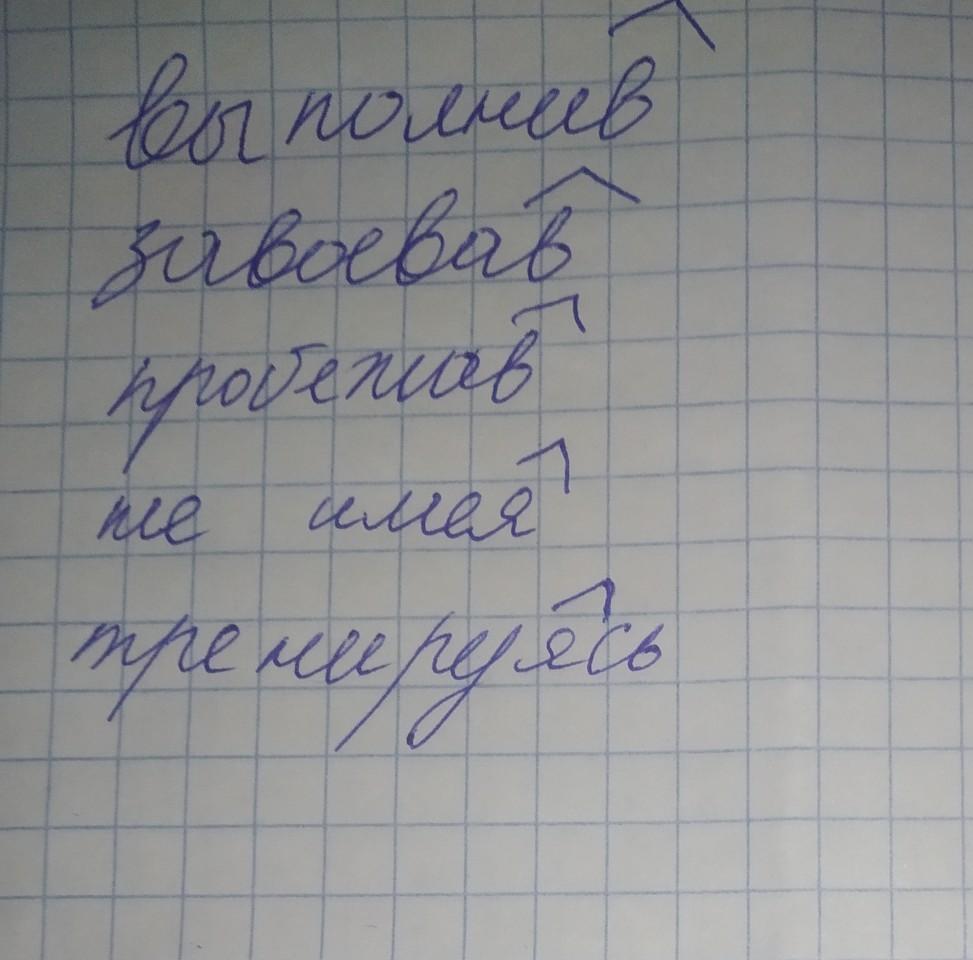 выполнив
завоевав
пробежав
не имея
тренируясь